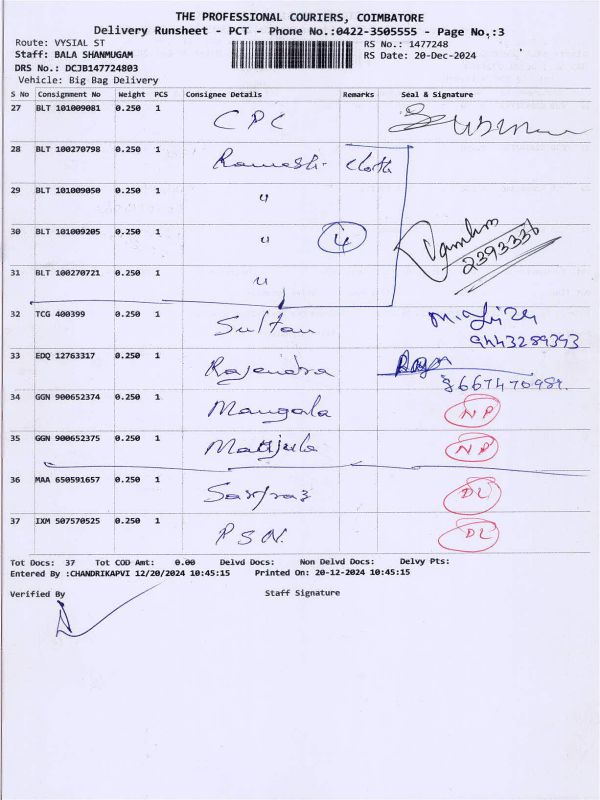 THE PROFESSIONAL COURIERS, COIMBATORE
Delivery Runsheet - PCT - Phone No.:0422-3505555 - Page No.:3
Route: VYSIAL ST
RS No.: 1477248
Staff: BALA SHANMUGAM
RS Date: 20-Dec-2024
DRS No.: DCJB147724803
Vehicle: Big Bag Delivery
S No Consignment No Weight PCS Consignee Details Remarks Seal & Signature
27 BLT 101009081 0.250 1 CPC
28 BLT 100270798 0.250 1 Ramesh Cloth
29 BLT 101009050 0.250 1 "
30 BLT 101009205 0.250 1 " 4
2393336
31 BLT 100270721 0.250 1 "
32 TCG 400399 0.250 1 Sultan
9443289393
33 EDQ 12763317 0.250 1 Rajendra
8667470984.
34 GGN 900652374 0.250 1 Mangala NP
35 GGN 900652375 0.250 1 Manjula NP
36 MAA 650591657 0.250 1 Sarfraz DL
37 IXM 507570525 0.250 1 PSN. DL
Tot Docs: 37 Tot COD Amt: 0.00 Delvd Docs: Non Delvd Docs: Delvy Pts:
Entered By :CHANDRIKAPVI 12/20/2024 10:45:15 Printed On: 20-12-2024 10:45:15
Verified By Staff Signature